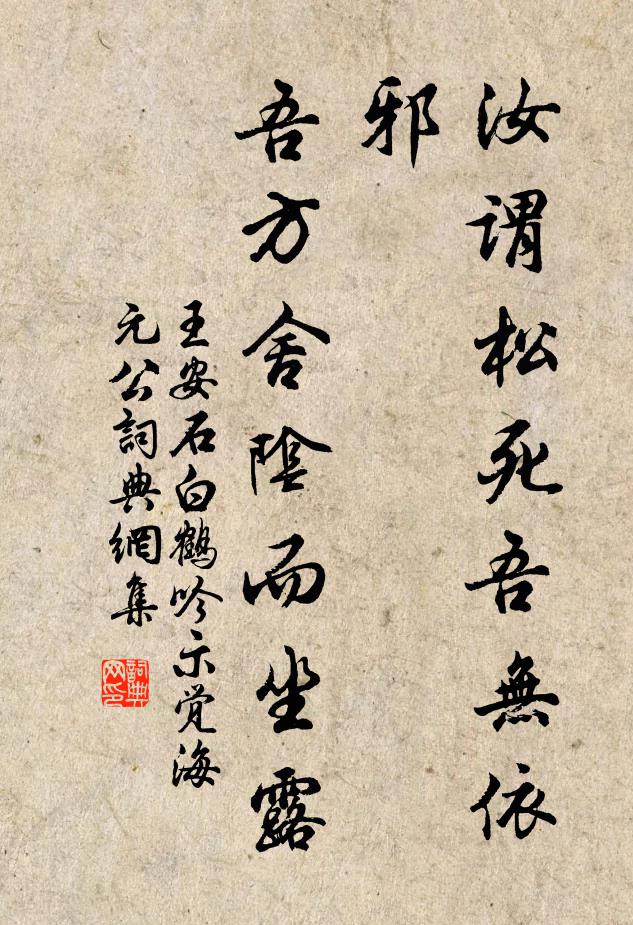 汝謂松死吾無依
邪
吾方舍陰而坐露
王安石白鶴吟示覚海
元公詞典網集
詞典
网印